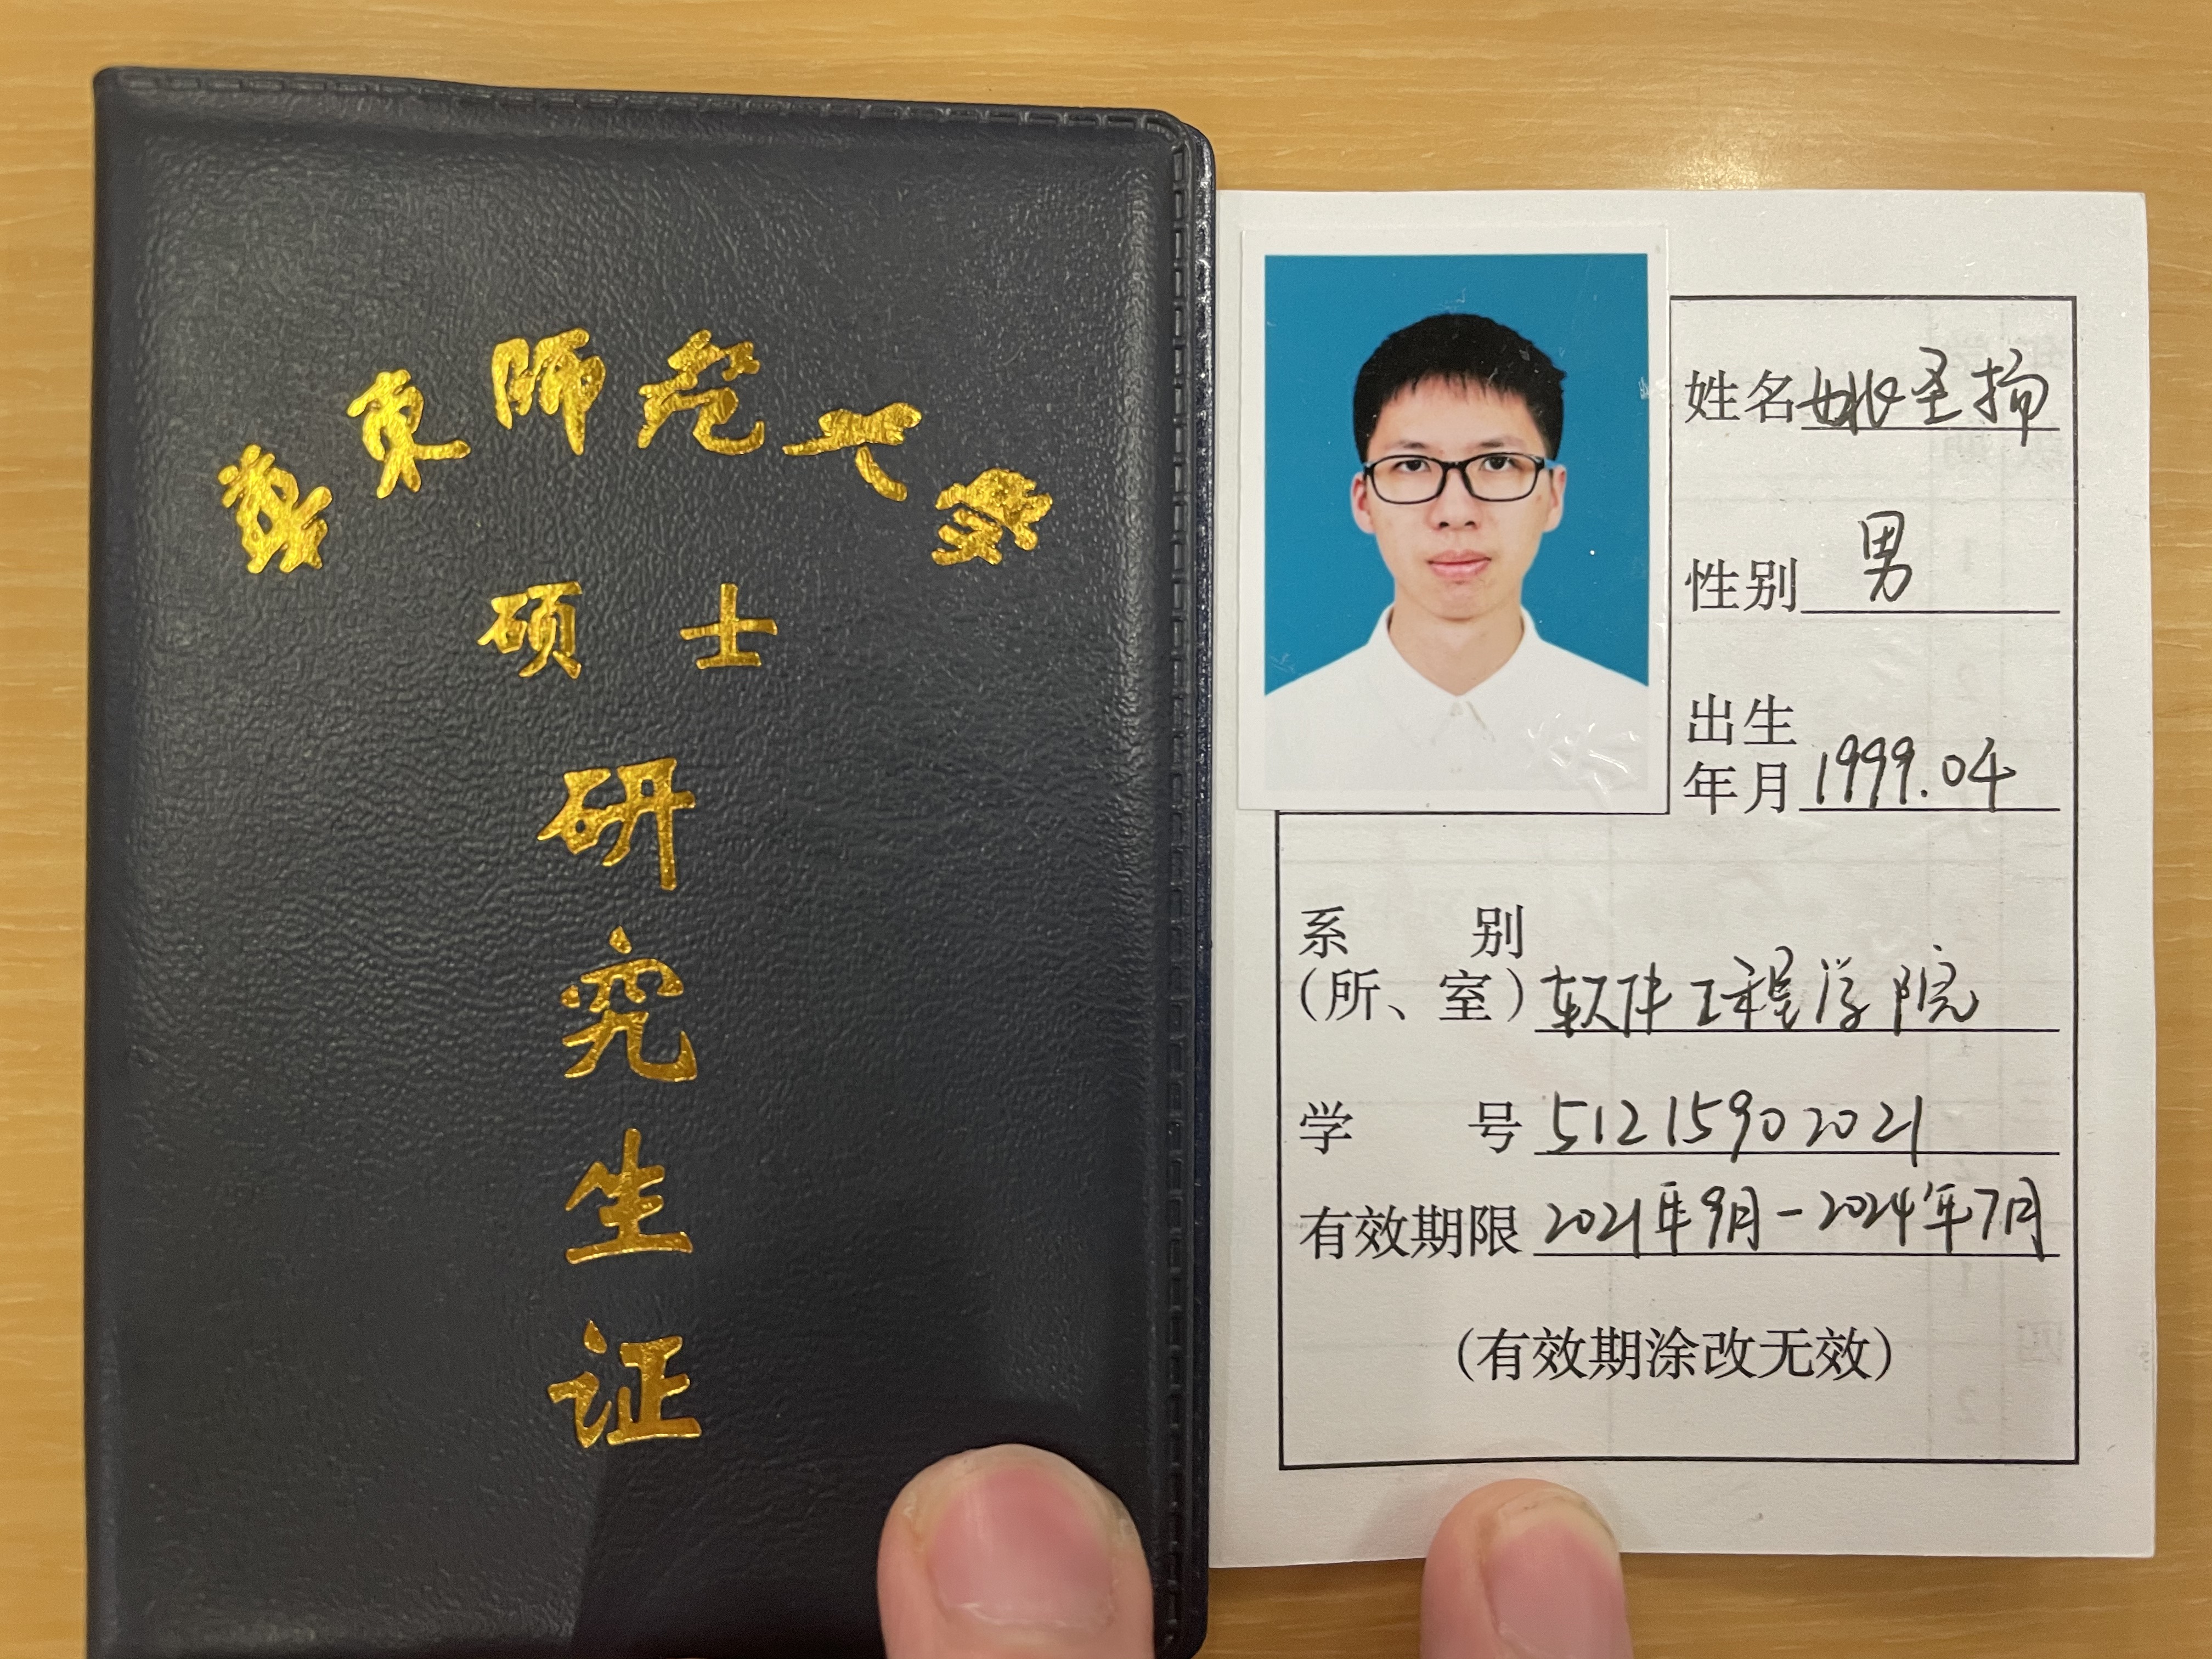 华东师范大学
硕士
研究生证
姓名 姬圣楠
性别 男
出生
年月 1999.04
系别
(所、室) 软件工程学院
学号 51215902021
有效期限 2021年9月-2024年7月
(有效期涂改无效)